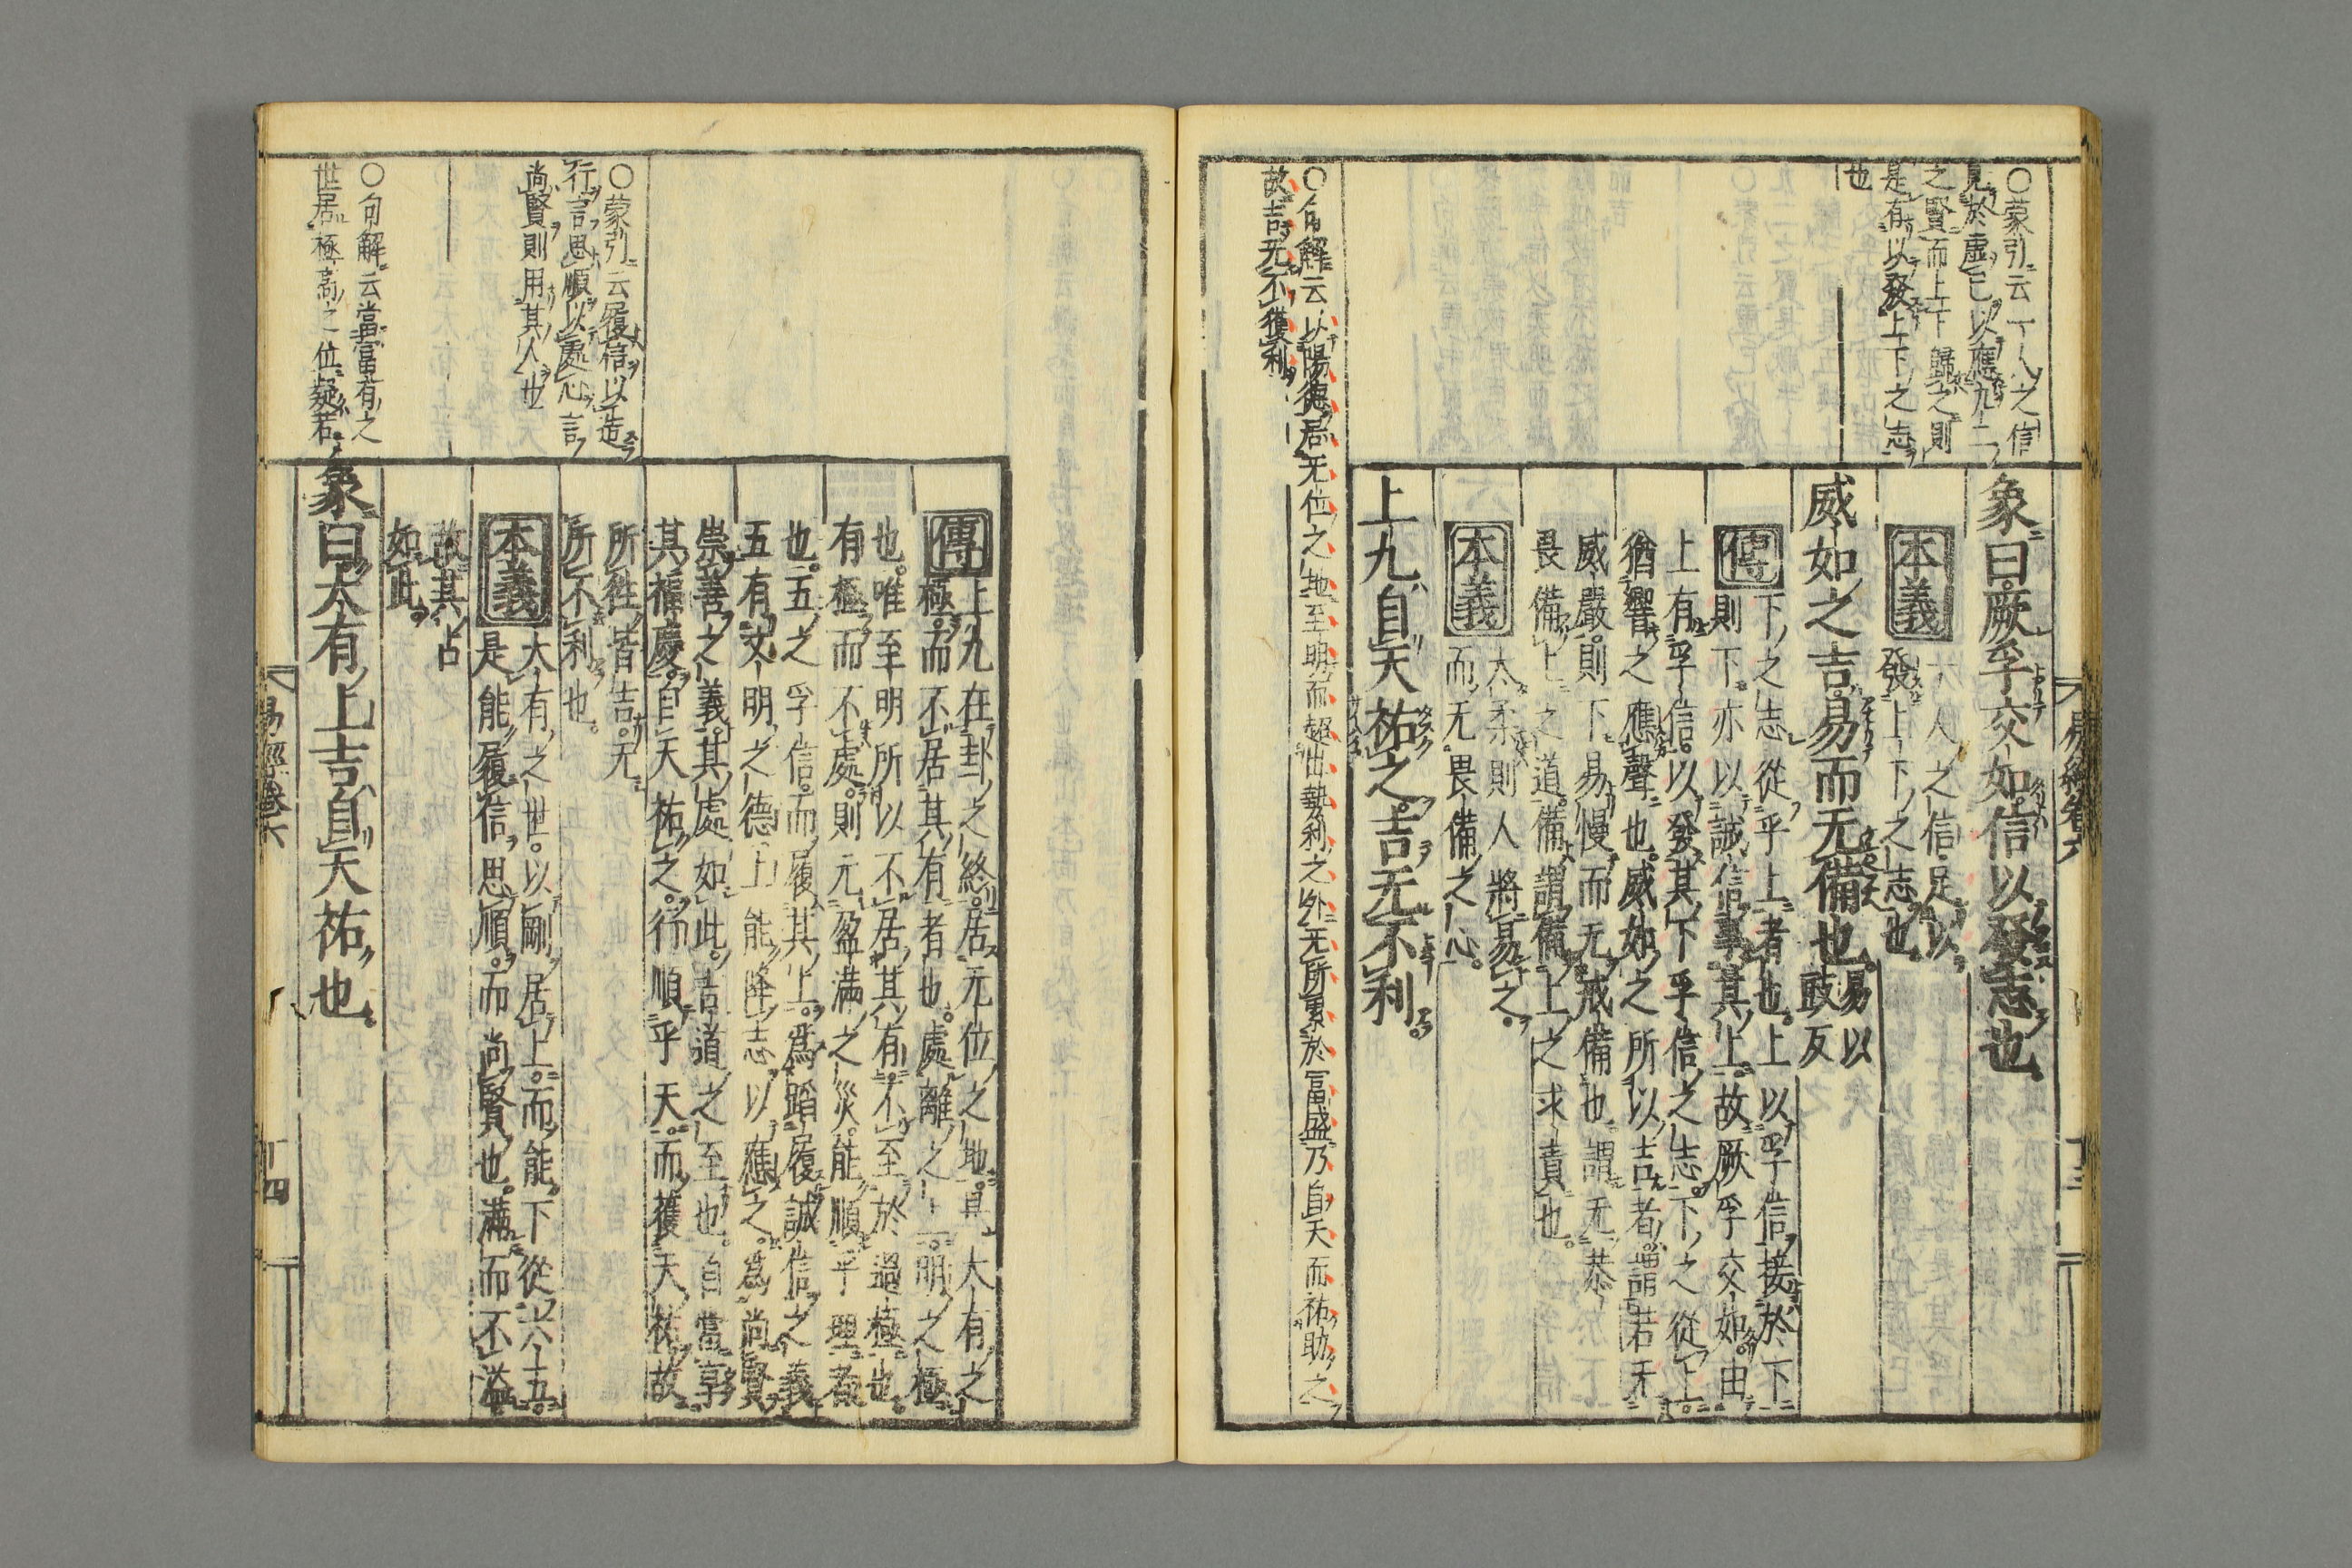 ○蒙引云一人之信
見於虛己以應九二
之賢而上下歸之則
是有以發上下之志
也
象曰厥孚交如信以發志也
本義
一人之信足以
發上下之志也
威如之吉易而无備也
易以
豉反
傳
下之志從乎上者也。上以孚信接於下
則下亦以誠信事其上。故厥孚交如。由
上有孚信。以發其下孚信之志。下之從上。
猶響之應聲也。威如之所以吉者。謂若无
威嚴。則下易慢而无戒備也。謂无恭
畏備上之道。備謂備上之求責也。
本義
太柔則人將易之。
而无畏備之心。
上九自天祐之。吉无不利。
○句解云以陽德居无位之地至明而超出勢利之外无所累於富盛乃自天而祐助之
故吉无不獲利
傳
上九在卦之終。居无位之地。是大有之
極。而不居其有者也。處離之上。明之極
也。唯至明所以不居其有。不至於過極也。
有極而不處。則无盈滿之災。能順乎理者
也。五之孚信。而履其上。爲蹈履誠信之義
五有文明之德。上能降志以應之。爲尚賢
崇善之義。其處如此。吉道之至也。自當享
其福慶。自天祐之。行順乎天。而獲天祐。故
所往皆吉。无
所不利也。
本義
大有之世。以剛居上。而能下從六五。
是能履信思順。而尚賢也。滿而不溢。
故其占
如此。
○蒙引云履信以造
行言思順以處心言
尚賢則用其人也
象曰大有上吉自天祐也。
○句解云當富有之
世居極高之位疑若
易經卷六
十三
易經卷六
十四